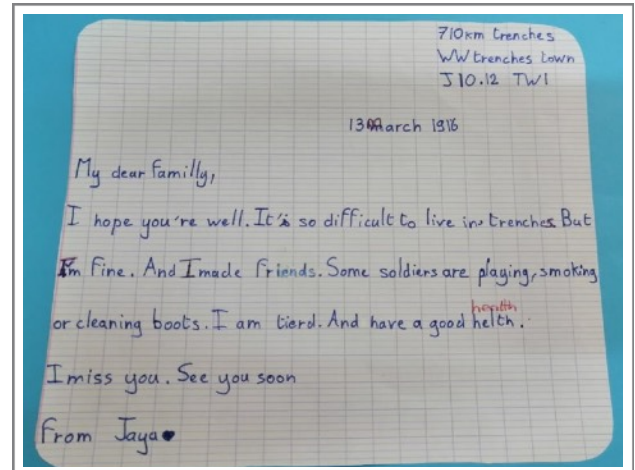 710km trenches
WW trenches town
J10.12 TW1
13 March 1916
My dear familly,
I hope you're well. It's so difficult to live in trenches. But
I'm fine. And I made friends. Some soldiers are playing, smoking
or cleaning boots. I am tierd. And have a good helth.
health
I miss you. See you soon
From Jaya